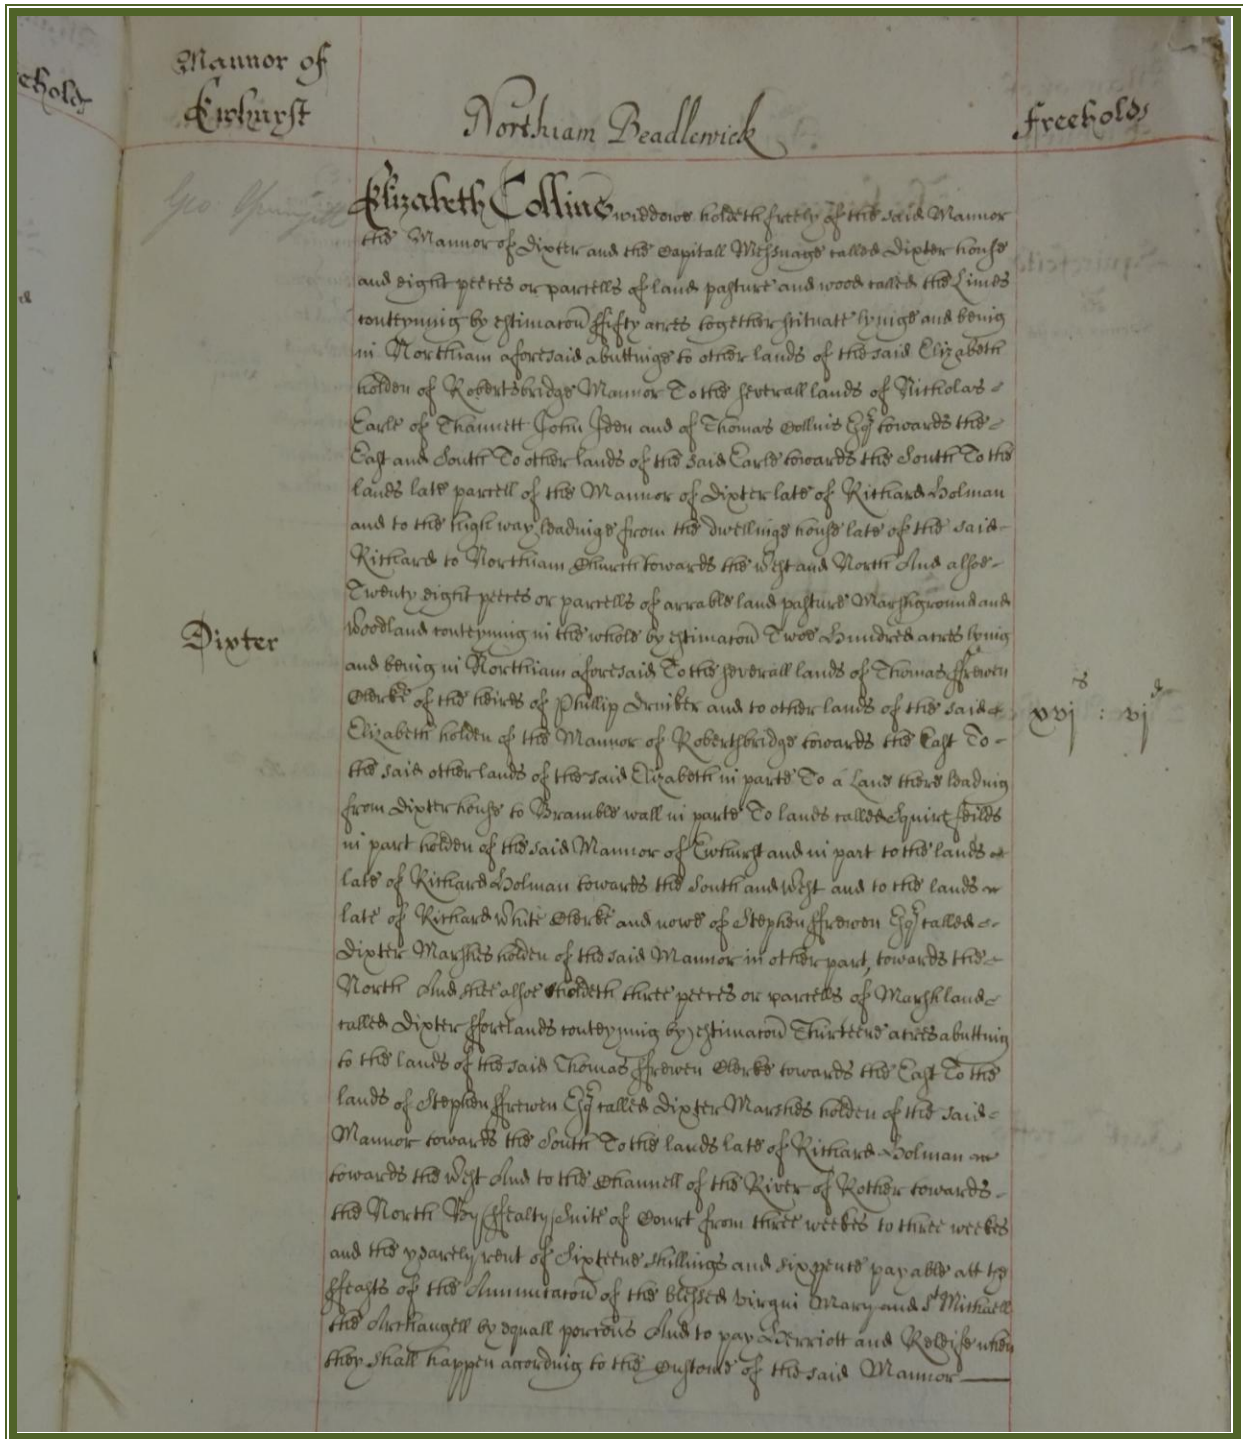 Mannor of
Ewhurst
Northiam Beadlewick
Freeholds
eholds
Geo
Elizabeth Collins widdowe holdeth freely of the said Mannor
the Mannor of Dixter and the Capitall Messuage called Dixter house
and eight peeces or parcells of land pasture and wood called the Lines
conteyning by estimacon ffifty acres together scituate lyinge and being
in Northiam aforesaid abuttinge to other lands of the said Elizabeth
holden of Robertsbridge Mannor To the severall lands of Nicholas
Earle of Thannett John Iden and of Thomas Collins Esq towards the
East and South To other lands of the said Earle towards the South To the
lands late parcell of the Mannor of Dixter late of Richard Holman
and to the high way leadinge from the dwellinge house late of the said
Richard to Northiam Church towards the West and North And alsoe
Twenty eight peeces or parcells of arrable land pasture Marshground and
Woodland conteyning in the whole by estimacon Twoe Hundred acres lying
Dixter
and being in Northiam aforesaid To the severall lands of Thomas ffrewen
Clerke of the heires of Phillip and to other lands of the said
xvj s : vj d
Elizabeth holden of the Mannor of Robertsbridge towards the East To
the said other lands of the said Elizabeth in parte To a Lane there leading
from Dixter house to Bramble wall in parte To lands called Squire feilds
in part holden of the said Mannor of Ewhurst and in part to the lands
late of Richard Holman towards the South and West and to the lands
late of Richard White Clerke and nowe of Stephen ffrewen Esq called
Dixter Marshes holden of the said Mannor in other part, towards the
North And shee alsoe holdeth three peeces or parcells of Marshland
called Dixter fforelands conteyning by estimacon Thirteene acres abutting
to the lands of the said Thomas ffrewen Clerke towards the East To the
lands of Stephen ffrewen Esq called Dixter Marshes holden of the said
Mannor towards the South To the lands late of Richard Holman
towards the West And to the Channell of the River of Rother towards
the North By ffealty Suite of Court from three weekes to three weekes
and the yearely rent of Sixteene shillings and sixpence payable att the
ffeasts of the Annunciacon of the blessed Virgin Mary and St Michaell
the Archangell by equall porcons And to pay Herriott and Releife when
they shall happen according to the Custome of the said Mannor